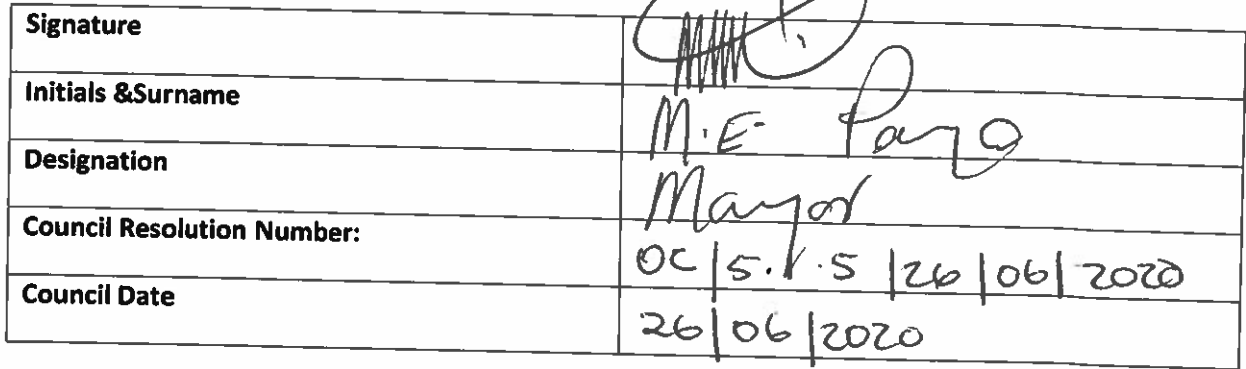 Signature
Initials &Surname M.E.
Designation Mayor
Council Resolution Number: OC|5.1.5|26|06|2020
Council Date 26|06|2020